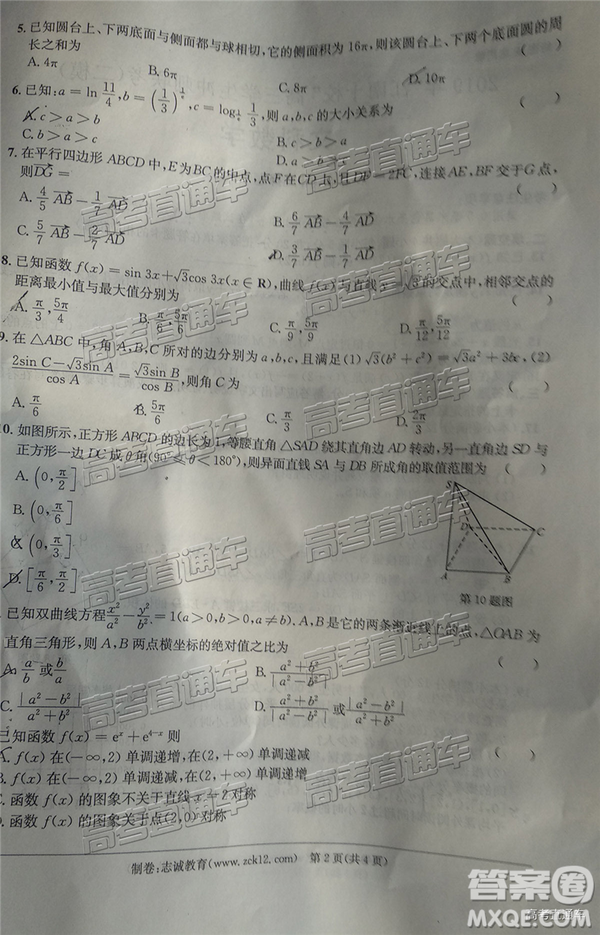 5. 已知圆台上、下两底面与侧面都与球相切,它的侧面积为 16π,则该圆台上、下两个底面圆的周
长之和为 ( )
A. 4π B. 6π C. 8π D. 10π
6. 已知:a=ln 11/4, b=(1/3)^
, c=log , 则 a,b,c 的大小关系为 ( )
A. c>a>b B. a>b>c
C. b>a>c D. a>c>b
7. 在平行四边形 ABCD 中,E为BC的中点,点F在 CD 上,且DF=2FC,连接AE,BF交于G点,
则DG= ( )
A. 4/5 AB − 1/7 AD B. 6/7 AB − 4/7 AD
C. 5/7 AB − 2/7 AD D. 3/7 AB − 1/7 AD
8. 已知函数 f(x)=sin 3x+√3cos 3x(x∈R),曲线 f(x)与直线 交点中,相邻交点的
距离最小值与最大值分别为 ( )
A. π/3, 5π/4 C. π/9, 5π/9 D. π/12, 5π/12
9. 在 △ABC 中,角 A,B,C 所对的边分别为 a,b,c,且满足(1) √3(b²+c²)=√3a²+3bc, (2)
(2sin C−√3sin A)/cos A = √3sin B/cos B, 则角 C 为 ( )
A. π/6 B. 5π/6 C. π/3 D. 2π/3
10. 如图所示,正方形 ABCD 的边长为 1,等腰直角 △SAD 绕其直角边 AD 转动,另一直角边 SD 与
正方形一边 DC 成 θ 角(90°≤θ<180°),则异面直线 SA 与 DB 所成角的取值范围为 ( )
A. (0, π/2]
B. (0, π/6]
C. (0, π/3]
D. [π/6, π/2]
S
D
C
A
B
第10题图
已知双曲线方程 x²/a² − y²/b² = 1(a>0,b>0,a≠b),A,B是它的两条渐近线上的点,△OAB 为
直角三角形,则 A,B 两点横坐标的绝对值之比为 ( )
A. a/b 或 b/a B. (a²+b²)/|a²−b²|
C. |a²−b²|/(a²+b²) D. (a²+b²)/|a²−b²| 或 |a²−b²|/(a²+b²)
已知函数 f(x)=eˣ+e⁴⁻ˣ 则 ( )
A. f(x) 在(−∞,2) 单调递增,在(2,+∞) 单调递减
B. f(x) 在(−∞,2) 单调递减,在(2,+∞) 单调递增
C. 函数 f(x) 的图象不关于直线 x=2 对称
D. 函数 f(x) 的图象关于点 对称
制卷:志诚教育(www.zck12.com) 第2页(共4页)
高考直通车
高考直通车
高考直通车
高考直通车
高考直通车
高考直通车
答案圈
MXQE.COM
高考直通车